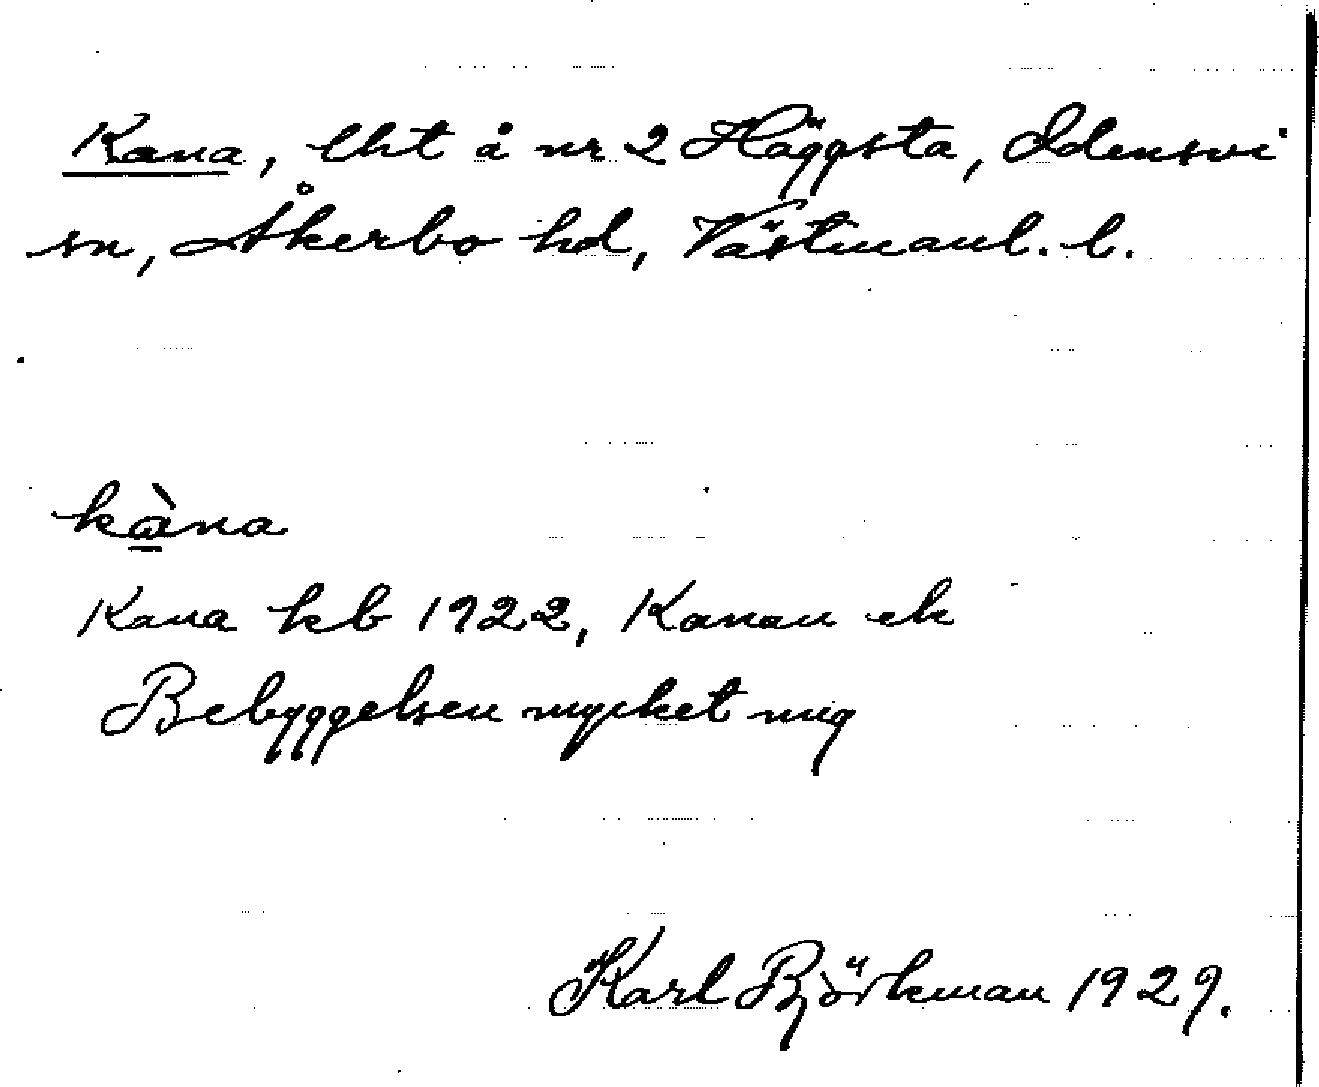 Kana, lht å nr 2 Häggsta, Odensvi
sn, Åkerbo hd, Västmanl. l.
kàna
Kana kb 1922, Kanan ek
Bebyggelsen mycket ung
Karl Björkman 1929.